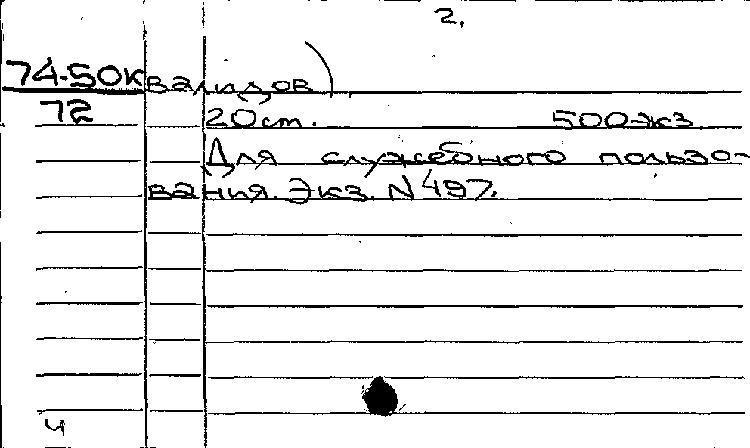 2.
74-50к валидов)
72 20 ст. 500 экз.
Для служебного пользо-
вания. Экз. N 497.
ч